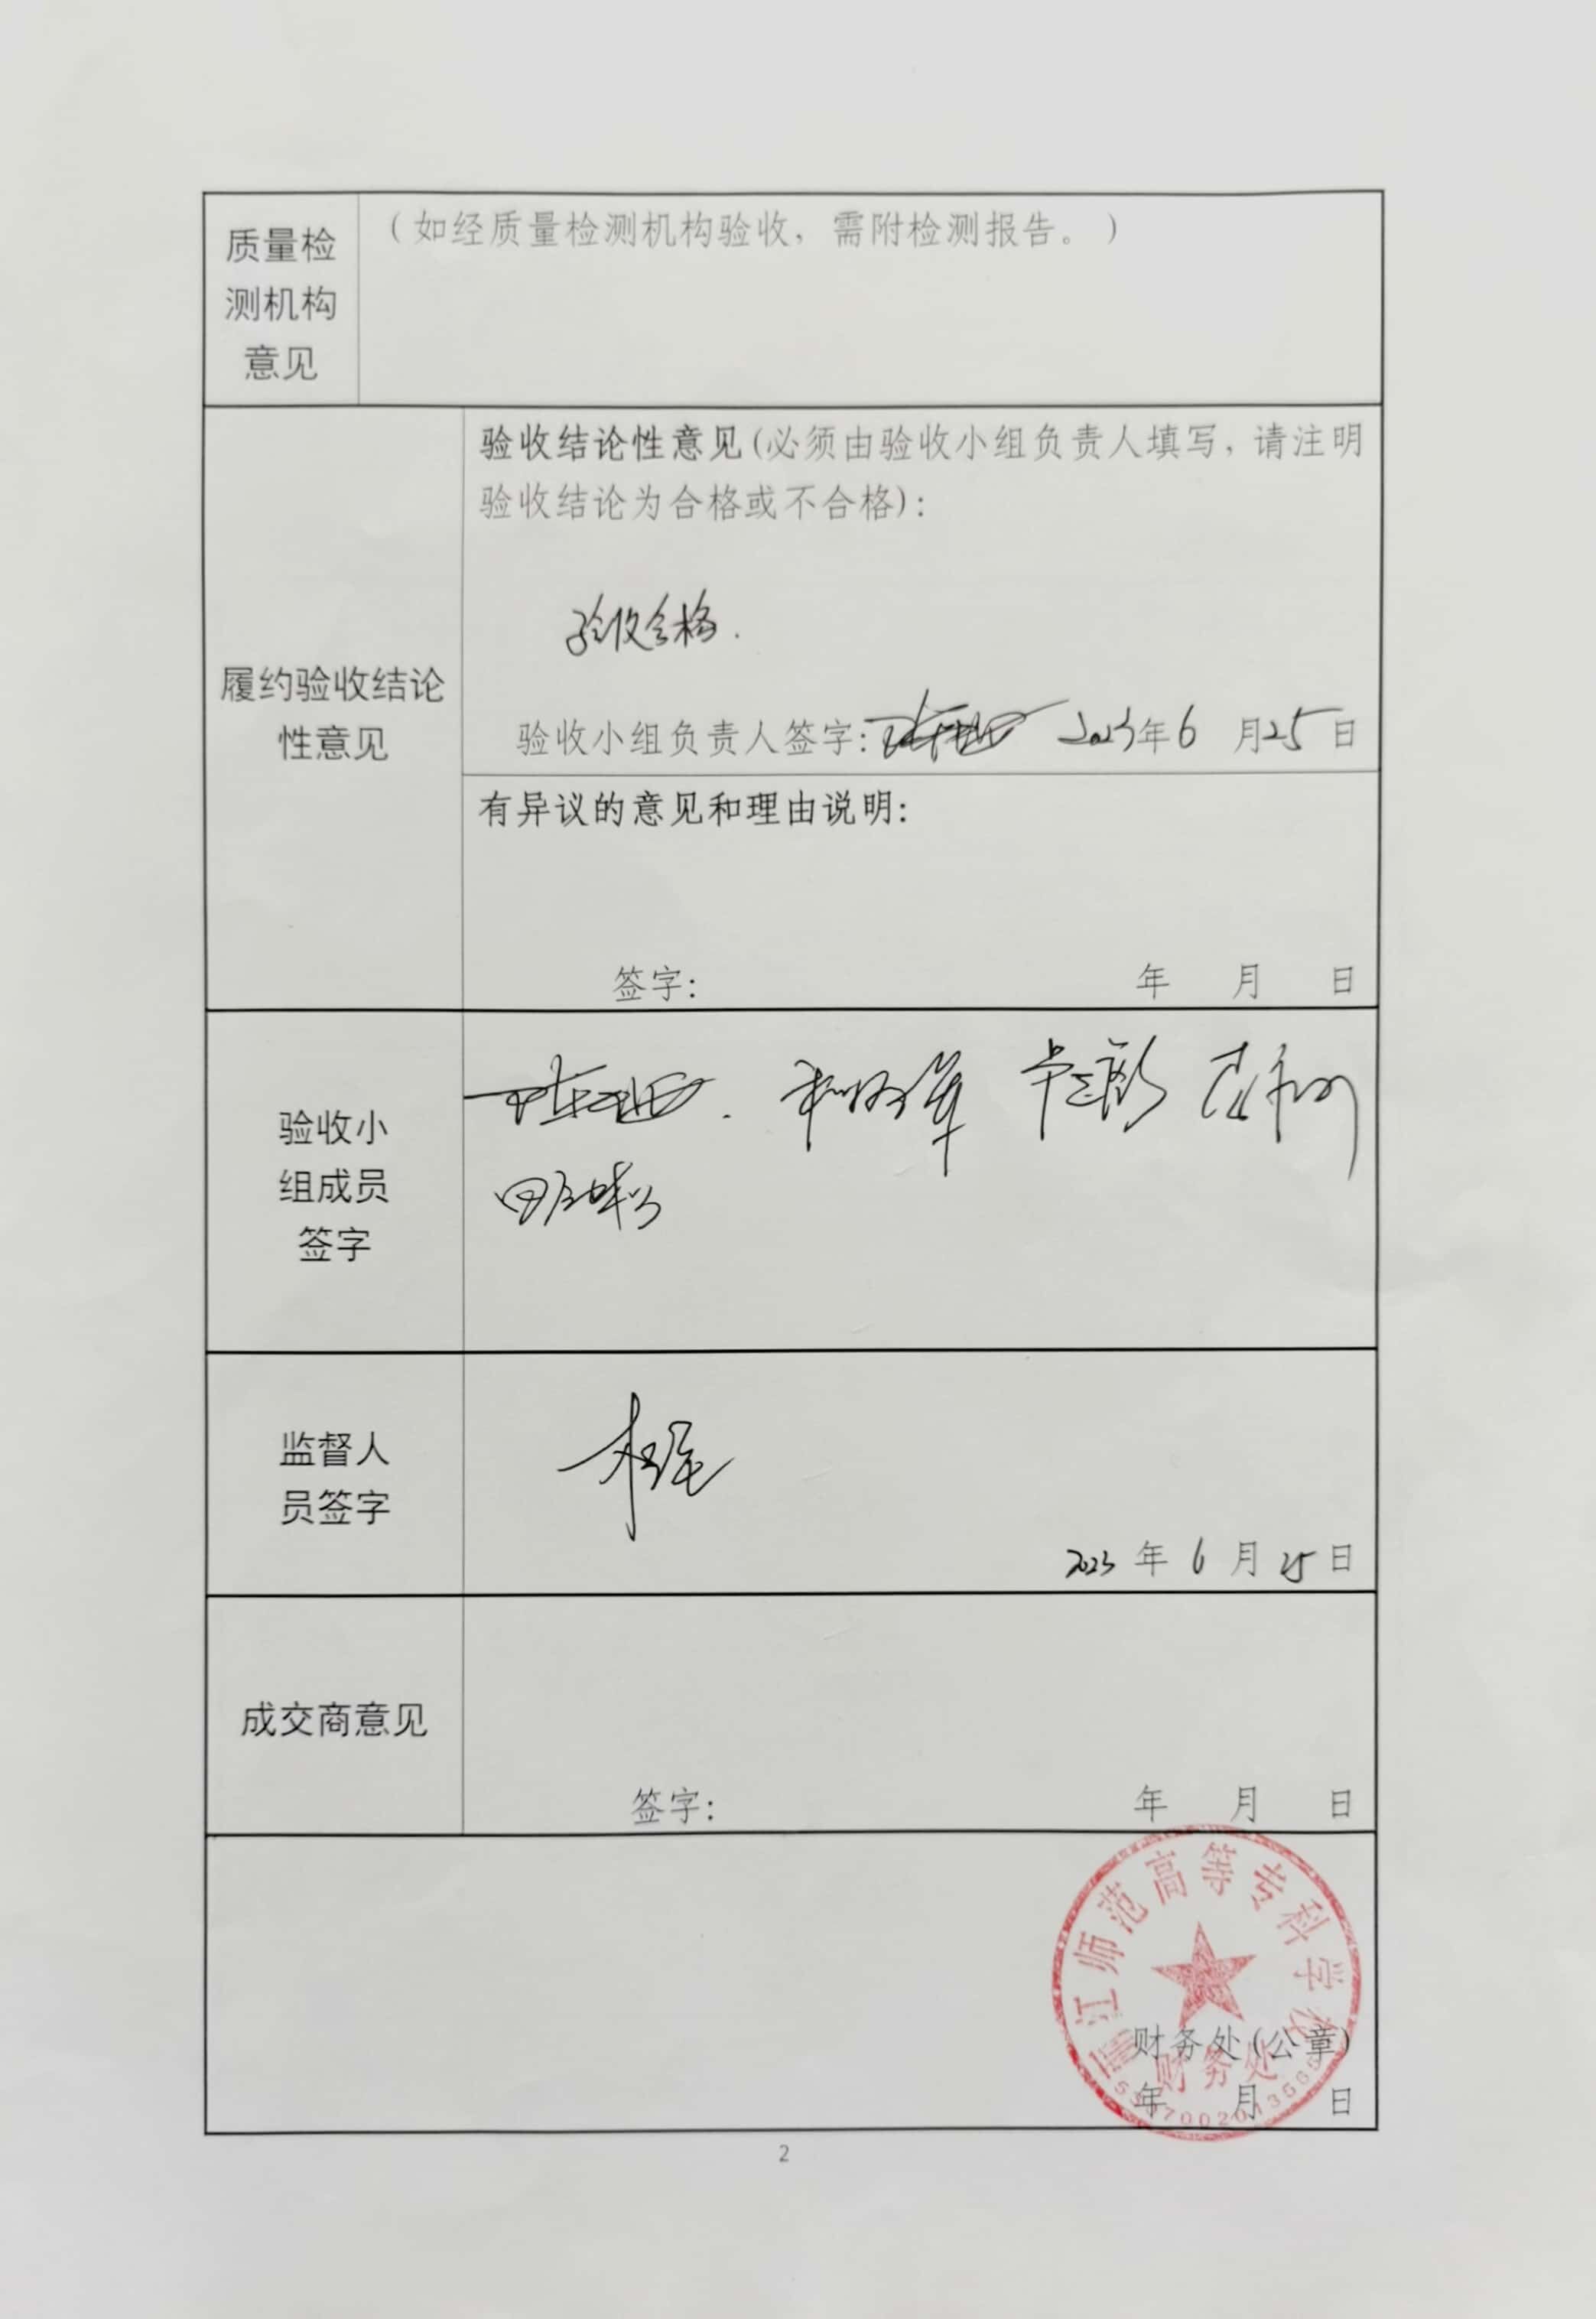 质量检
测机构
意见
（如经质量检测机构验收，需附检测报告。）
履约验收结论
性意见
验收结论性意见(必须由验收小组负责人填写，请注明
验收结论为合格或不合格)：
验收合格.
验收小组负责人签字： 2023年6月25日
有异议的意见和理由说明：
签字： 年 月 日
验收小
组成员
签字
监督人
员签字
2023年6月25日
成交商意见
签字： 年 月 日
丽江师范高等专科学校
财务处
财务处(公章)
年 月 日
2